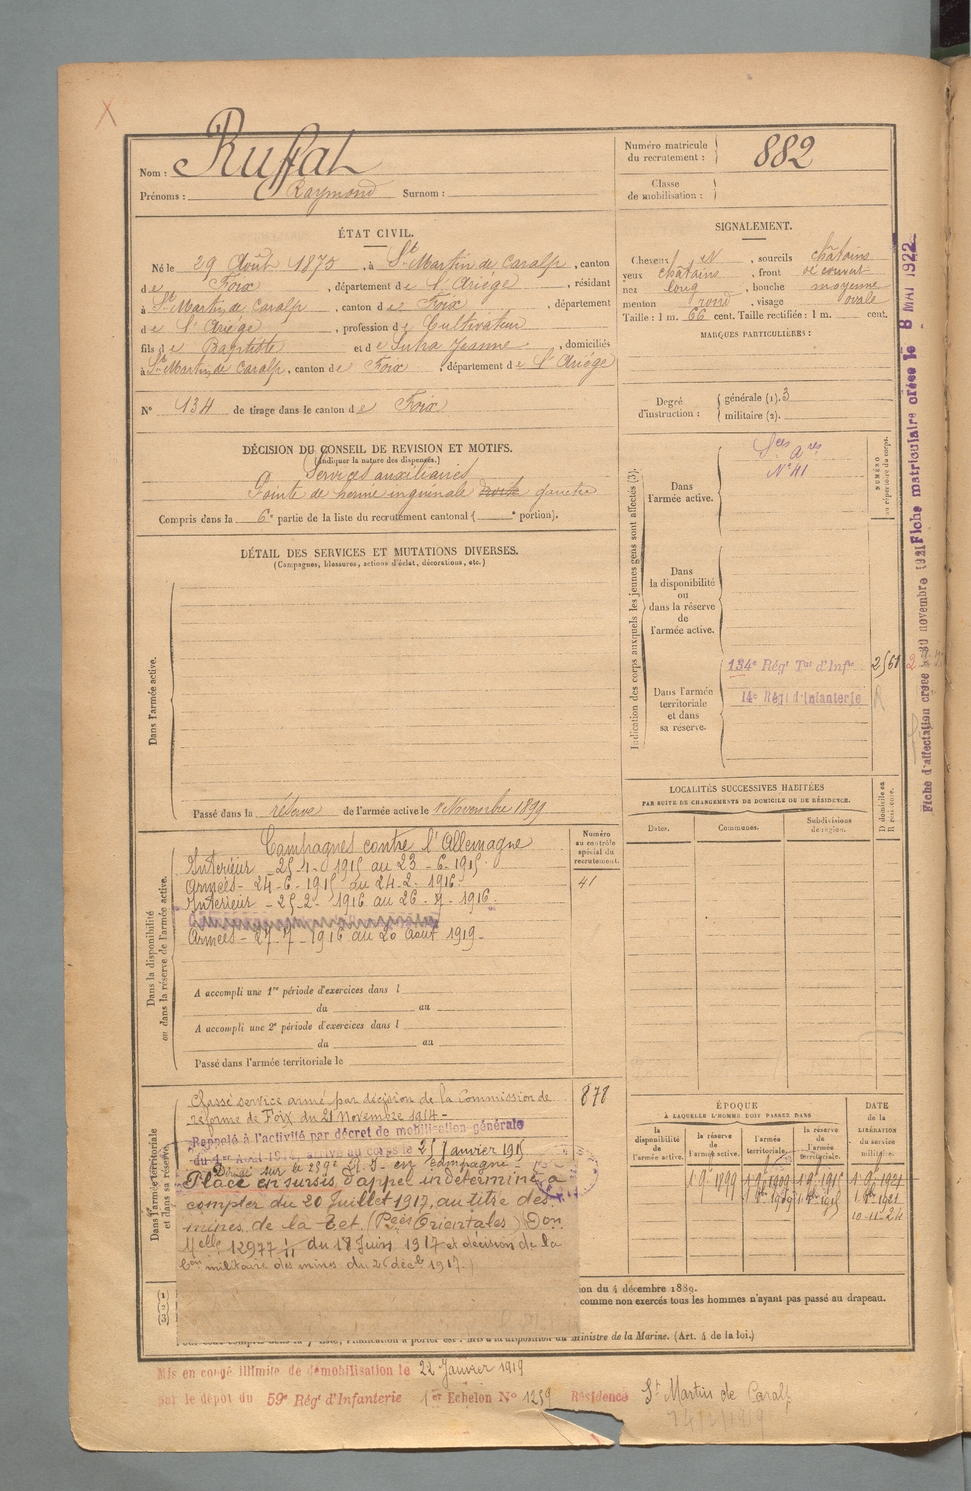 Nom : Ruffat
Prénoms : Raymond Surnom :
Numéro matricule du recrutement : 882
Classe de mobilisation :
ÉTAT CIVIL.
Né le 29 Août 1875, à St Martin de Caralp, canton
de Foix, département de l'Ariège, résidant
à St Martin de Caralp, canton de Foix, département
de l'Ariège, profession de Cultivateur
fils de Baptiste et de Jeanne, domiciliés
à St Martin de Caralp, canton de Foix, département de l'Ariège
N° 134 de tirage dans le canton de Foix
SIGNALEMENT.
Cheveux N, sourcils châtains
yeux châtains, front découvert
nez long, bouche moyenne
menton rond, visage ovale
Taille : 1 m. 66 cent. Taille rectifiée : 1 m. cent.
MARQUES PARTICULIÈRES :
Degré d'instruction : générale (1). 3
militaire (2).
DÉCISION DU CONSEIL DE REVISION ET MOTIFS.
(Indiquer la nature des dispenses.)
Services auxiliaires
Pointe de hernie inguinale droite gauche
Compris dans la 6e partie de la liste du recrutement cantonal ( e portion).
DÉTAIL DES SERVICES ET MUTATIONS DIVERSES.
(Campagnes, blessures, actions d'éclat, décorations, etc.)
Dans l'armée active.
Passé dans la réserve de l'armée active le 1 Novembre 1899
Indication des corps auxquels les jeunes gens sont affectés (3).
NUMÉRO au répertoire du corps.
Dans l'armée active.
Sces Ares
N° 41
Dans la disponibilité ou dans la réserve de l'armée active.
Dans l'armée territoriale et dans sa réserve.
134e Régt Tal d'Infie
14e Régt d'Infanterie
Fiche d'affectation créée le 30 novembre 1921
Fiche matriculaire créée le 8 MAI 1922
LOCALITÉS SUCCESSIVES HABITÉES
PAR SUITE DE CHANGEMENTS DE DOMICILE OU DE RÉSIDENCE.
Dates.
Communes.
Subdivisions de région.
D domicile ou R résidence.
Dans la disponibilité ou dans la réserve de l'armée active.
Numéro au contrôle spécial du recrutement.
41
Campagnes contre l'Allemagne
Intérieur - 25-1-1915 au 23-6-1915
Armées - 24-6-1915 au 24-2-1916
Intérieur - 25-2-1916 au 26-7-1916
Armées - 27-7-1916 au 20 Août 1919
A accompli une 1re période d'exercices dans l
du au
A accompli une 2e période d'exercices dans l
du au
Passé dans l'armée territoriale le
Dans l'armée territoriale et dans sa réserve.
878
Classé service armé par décision de la Commission de
réforme de Foix du 21 Novembre 1914
Rappelé à l'activité par décret de mobilisation générale
du 1er Août 1914, arrivé au corps le 25 Janvier 1915
Placé en sursis d'appel indéterminé à
compter du 20 Juillet 1917, au titre des
mines de la Tet (Pées Orientales) Don
Melle 12977 du 18 Juin 1917 et décision de la
militaire des mines du 2 déc 1917.
ÉPOQUE
À LAQUELLE L'HOMME DOIT PASSER DANS
la disponibilité de l'armée active.
la réserve de l'armée active.
l'armée territoriale.
la réserve de l'armée territoriale.
DATE DE LA LIBÉRATION du service militaire.
10-11-24
(1)
(2)
(3)
on du 4 décembre 1889.
comme non exercés tous les hommes n'ayant pas passé au drapeau.
Ministre de la Marine. (Art. 4 de la loi.)
Mis en congé illimité de démobilisation le 22 Janvier 1919
par le dépôt du 59e Régt d'Infanterie 1er Echelon N° 1259 Résidence St Martin de Caralp